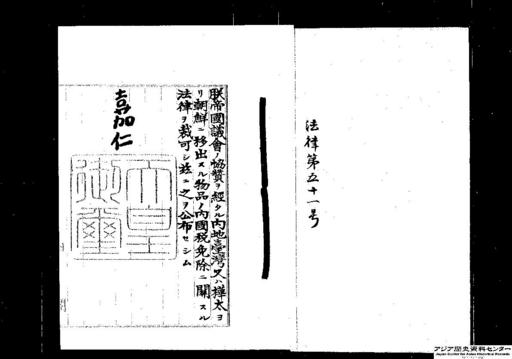 法律第五十一号
朕帝國議會ノ協賛ヲ經タル内地臺灣又ハ樺太ヨ
リ朝鮮ニ移出スル物品ノ内國税免除ニ關スル
法律ヲ裁可シ茲ニ之ヲ公布セシム
嘉仁
天皇
御璽
アジア歴史資料センター
Japan Center for Asian Historical Records